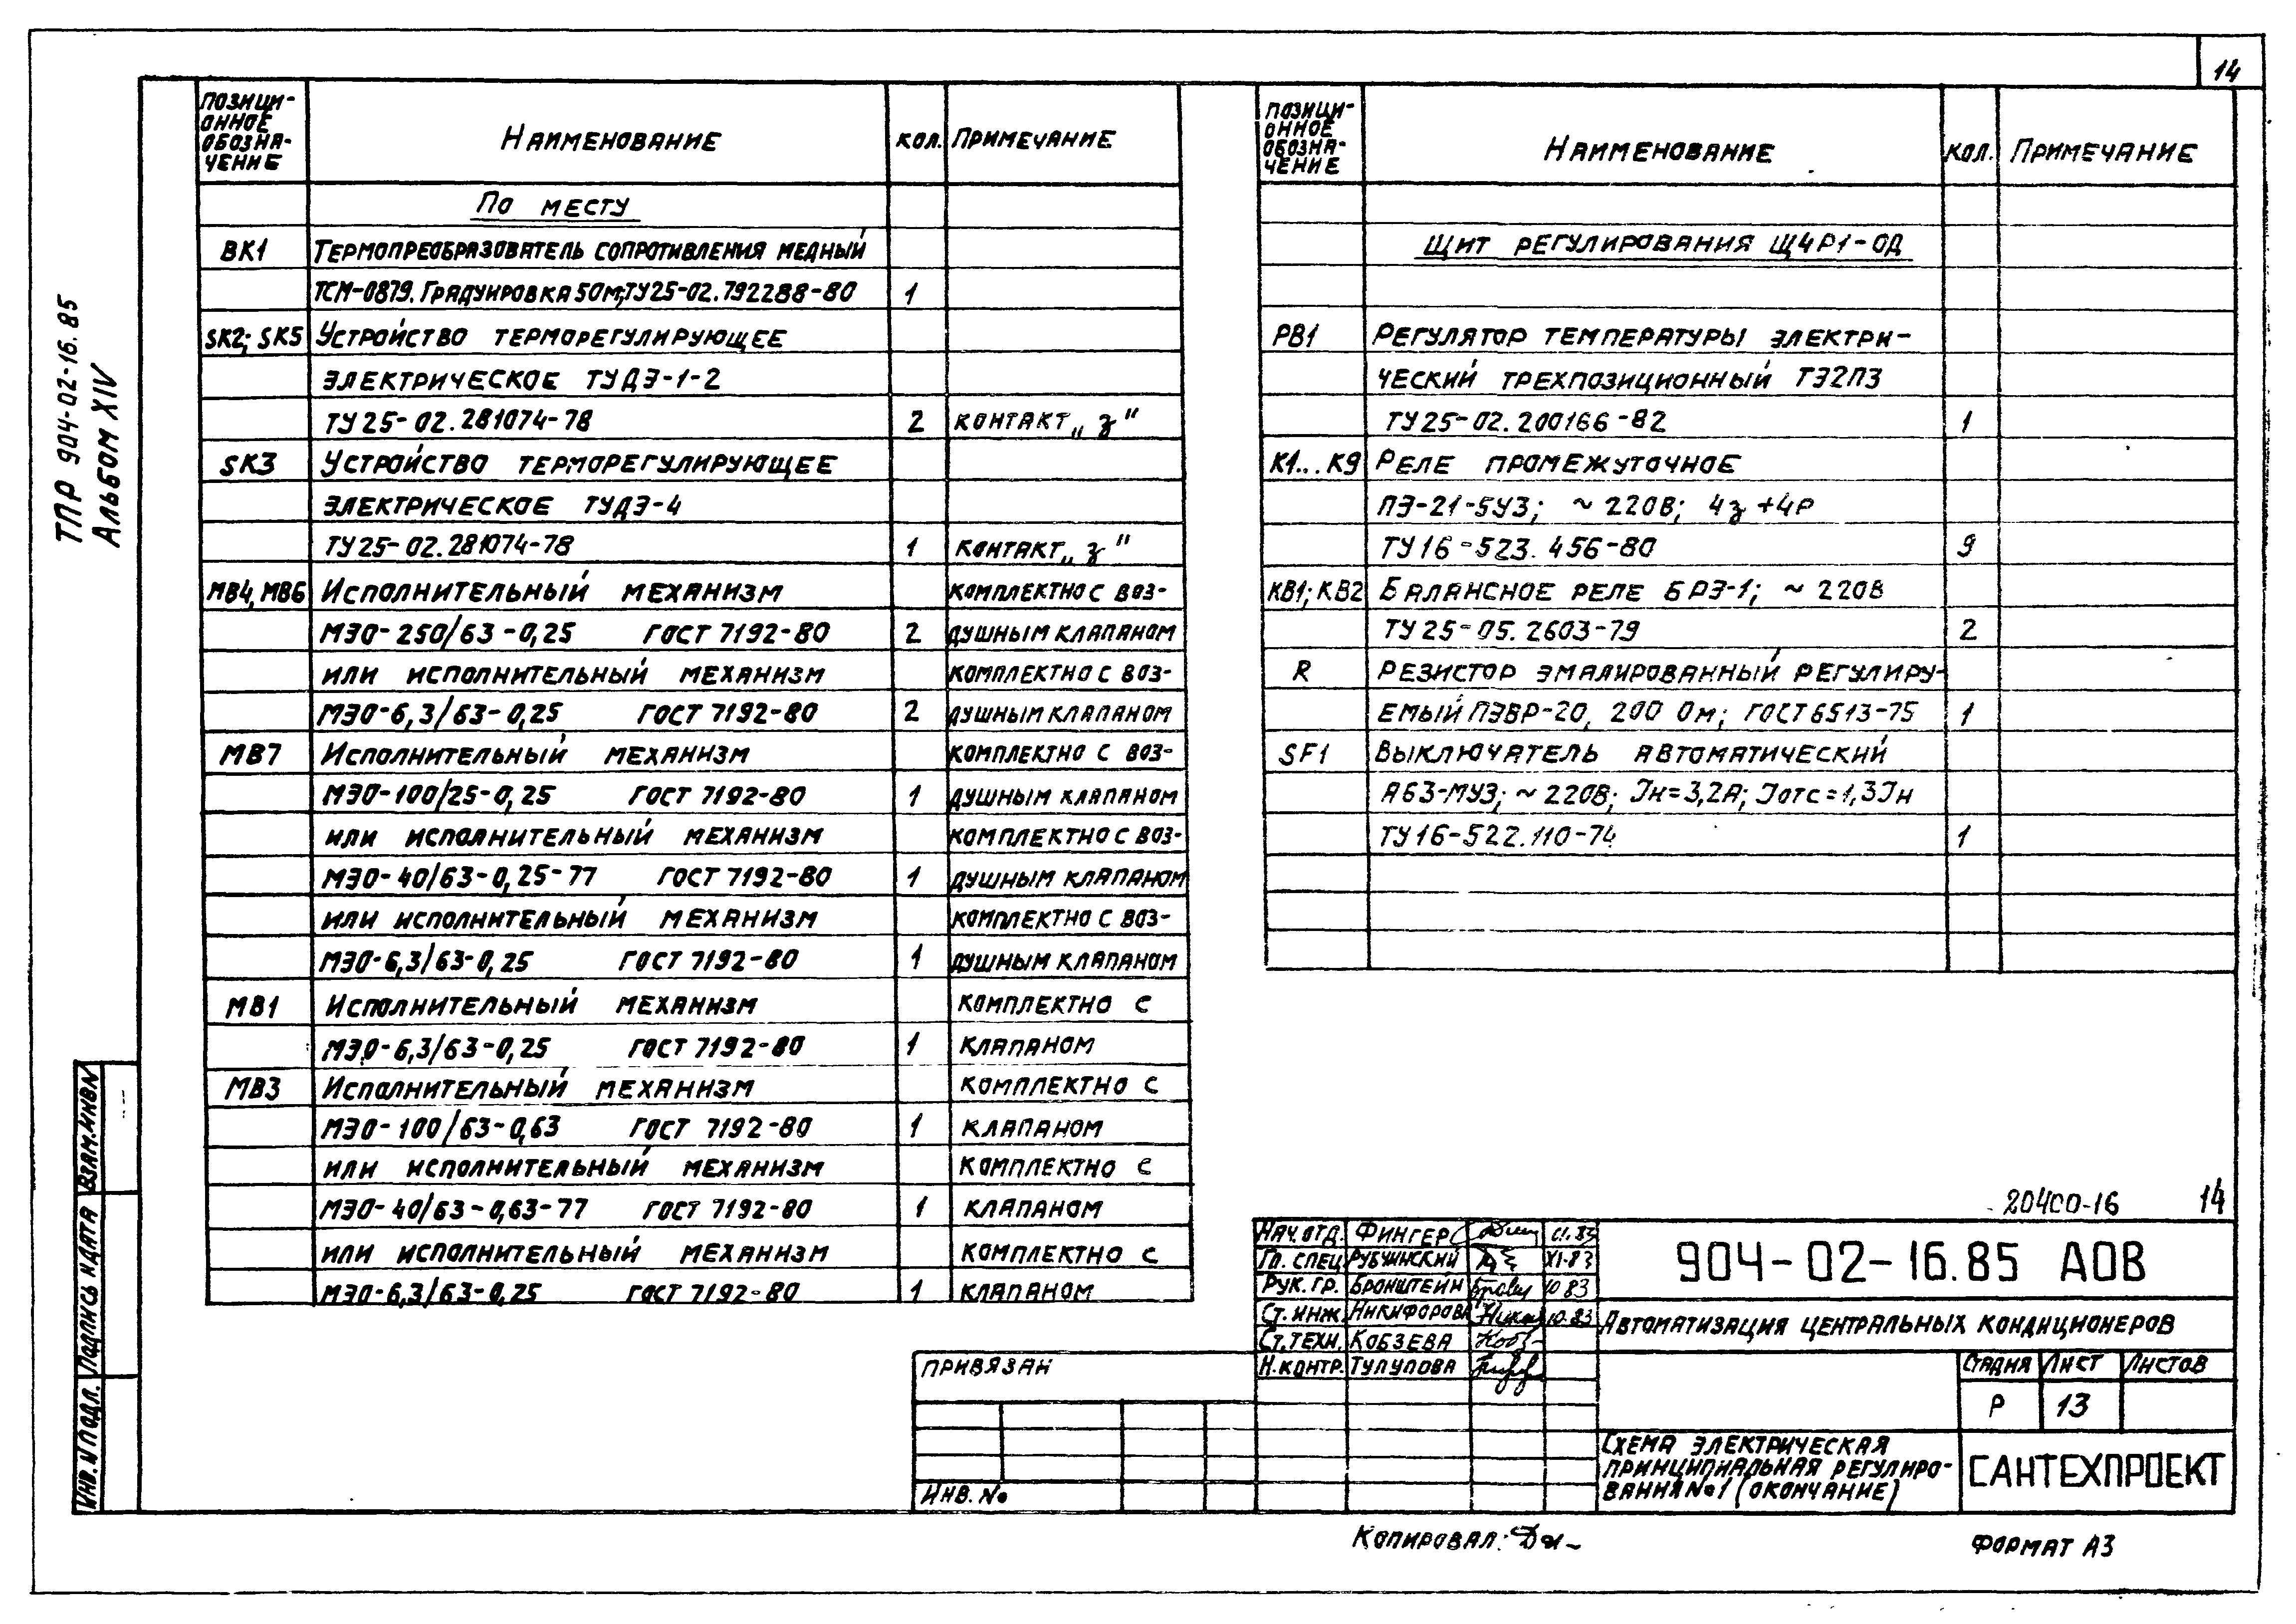 14
ТПР 904-02-16.85
Альбом XIV
Позици-
онное
обозна-
чение
Наименование
Кол.
Примечание
По месту
ВК1 Термопреобразователь сопротивления медный
ТСМ-0879. Градуировка 50м; ТУ25-02.792288-80 1
SK2; SK5 Устройство терморегулирующее
электрическое ТУДЭ-1-2
ТУ 25-02.281074-78 2 контакт „з"
SK3 Устройство терморегулирующее
электрическое ТУДЭ-4
ТУ 25-02.281074-78 1 контакт „з"
МВ4, МВ6 Исполнительный механизм комплектно с воз-
МЭО-250/63-0,25 ГОСТ 7192-80 2 душным клапаном
или исполнительный механизм комплектно с воз-
МЭО-6,3/63-0,25 ГОСТ 7192-80 2 душным клапаном
МВ7 Исполнительный механизм комплектно с воз-
МЭО-100/25-0,25 ГОСТ 7192-80 1 душным клапаном
или исполнительный механизм комплектно с воз-
МЭО-40/63-0,25-77 ГОСТ 7192-80 1 душным клапаном
или исполнительный механизм комплектно с воз-
МЭО-6,3/63-0,25 ГОСТ 7192-80 1 душным клапаном
МВ1 Исполнительный механизм комплектно с
МЭО-6,3/63-0,25 ГОСТ 7192-80 1 клапаном
МВ3 Исполнительный механизм комплектно с
МЭО-100/63-0,63 ГОСТ 7192-80 1 клапаном
или исполнительный механизм комплектно с
МЭО-40/63-0,63-77 ГОСТ 7192-80 1 клапаном
или исполнительный механизм комплектно с
МЭО-6,3/63-0,25 ГОСТ 7192-80 1 клапаном
Позици-
онное
обозна-
чение
Наименование
Кол.
Примечание
Щит регулирования Щ4Р1-ОД
РВ1 Регулятор температуры электри-
ческий трехпозиционный ТЭ2П3
ТУ25-02.200166-82 1
К1...К9 Реле промежуточное
ПЭ-21-5У3; ~220В; 4з+4р
ТУ16-523.456-80 9
КВ1; КВ2 Балансное реле БРЭ-1; ~220В
ТУ 25-05.2603-79 2
R Резистор эмалированный регулиру-
емый ПЭВР-20, 200 Ом; ГОСТ6513-75 1
SF1 Выключатель автоматический
А63-МУ3; ~220В; Iн=3,2А; Iотс=1,3Iн
ТУ16-522.110-74 1
20400-16 14
Нач. отд. Фингер
Гл. спец Рубчинский XI-83
Рук. гр. Бронштейн 10 83
Ст. инж. Никифорова 10.83
Ст. техн. Кобзева
Н. контр. Тулупова
904-02-16.85 АОВ
Автоматизация центральных кондиционеров
Стадия Лист Листов
Р 13
Схема электрическая
принципиальная регулиро-
вания №1 (окончание)
САНТЕХПРОЕКТ
Привязан
Инв. №
Взам. инв N
Подпись и дата
Инв. N подл.
Копировал:
Формат А3